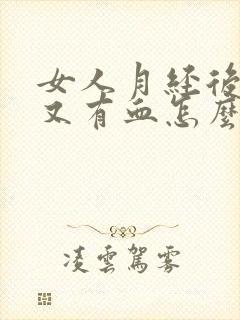 女人月经後
又有血怎麼
凌雲駕霧